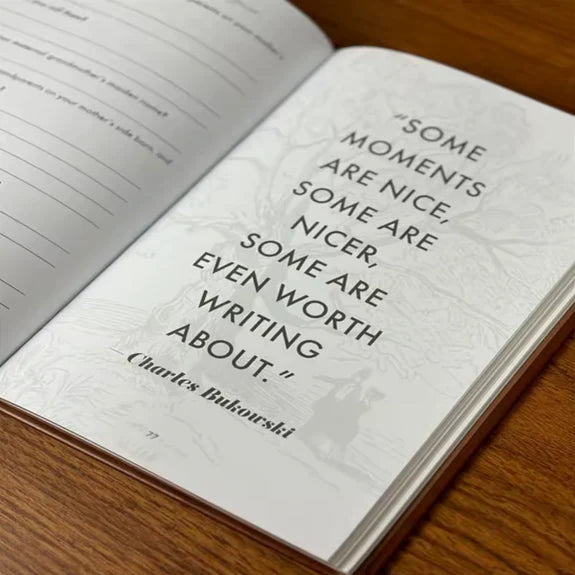 you
maternal grandmother's maiden name?
grandparents on your mother's side born, and
"SOME
MOMENTS
ARE NICE,
SOME ARE
NICER,
SOME ARE
EVEN WORTH
WRITING
ABOUT."
— Charles Bukowski
77